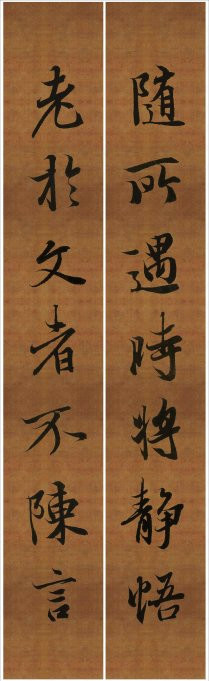 随所遇時將静悟
老於文者不陳言